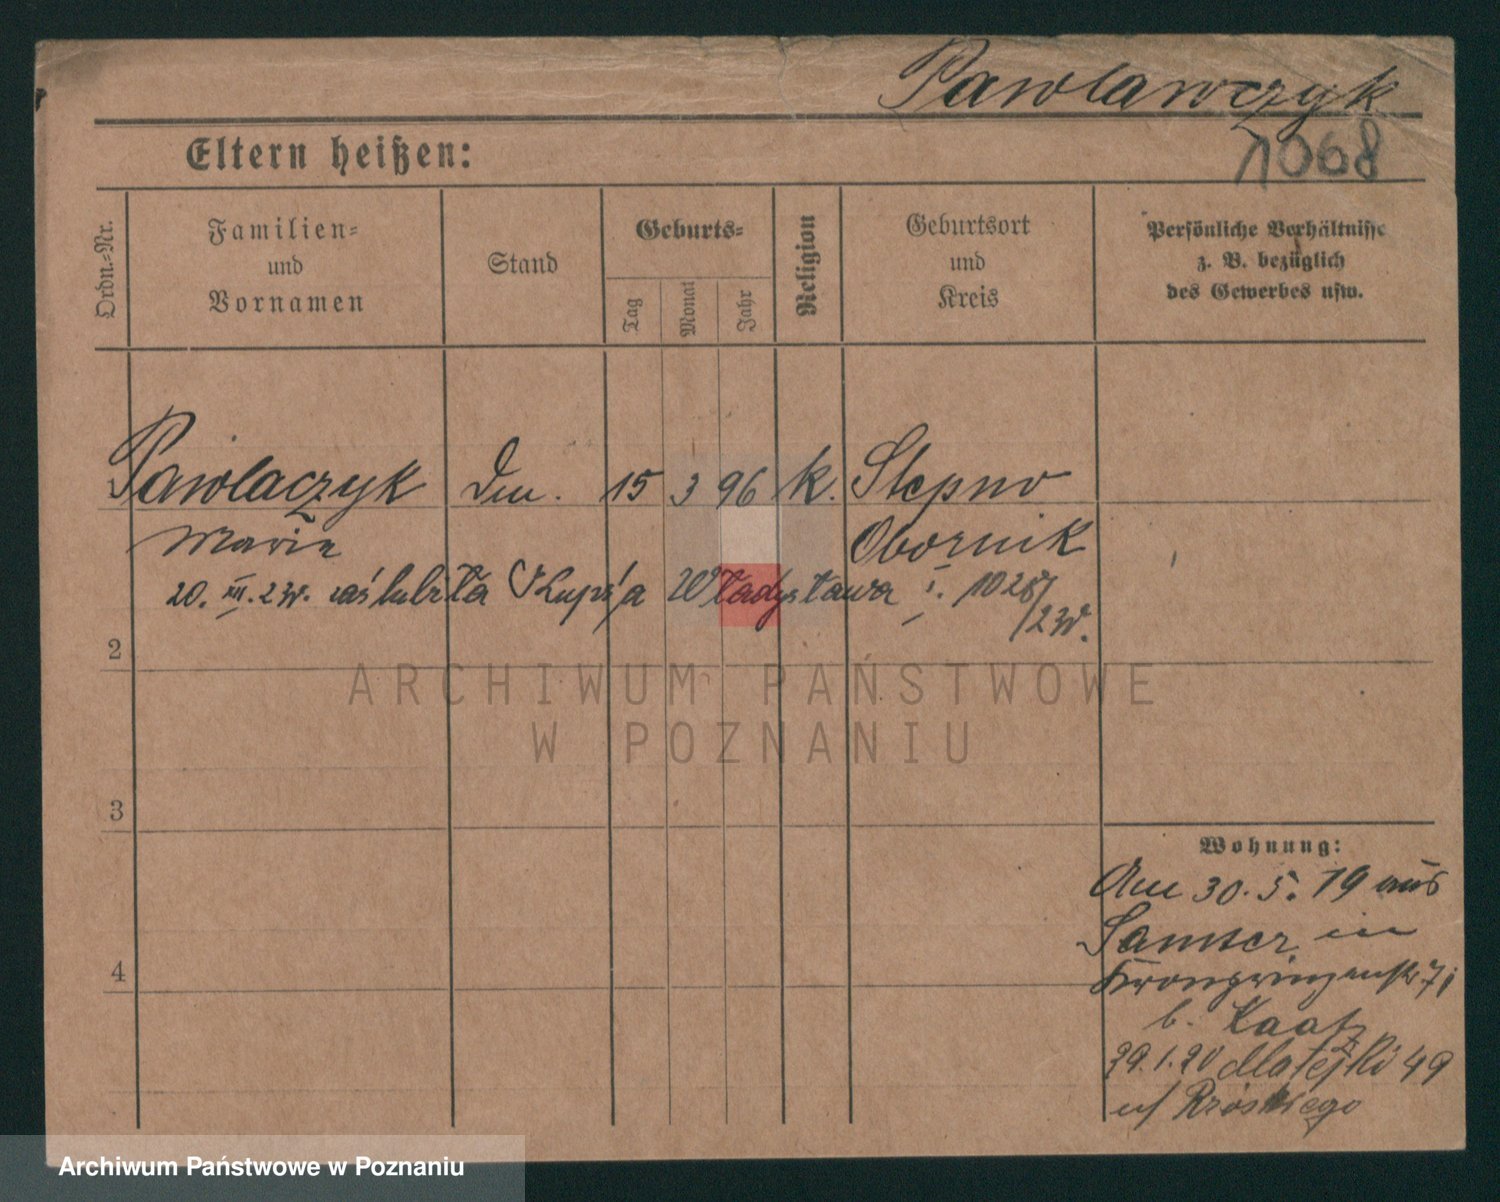 Pawlawczyk
Eltern heißen:
1068
Ordn.=Nr.
Familien=
und
Vornamen
Stand
Geburts=
Tag
Monat
Jahr
Religion
Geburtsort
und
Kreis
Persönliche Verhältnisse
z. B. bezüglich
des Gewerbes usw.
1 Pawlaczyk 15 3 96 k. Stepno
Marie Obornik
20. XII. 23r. zaślubiła Władysława
2
3
Wohnung:
Am 30.5.19 aus
Samter in
4
Kronprinzenstr. 7i
b. Kaatz
29.1.20 Matejki 49
ARCHIWUM PAŃSTWOWE
W POZNANIU
Archiwum Państwowe w Poznaniu